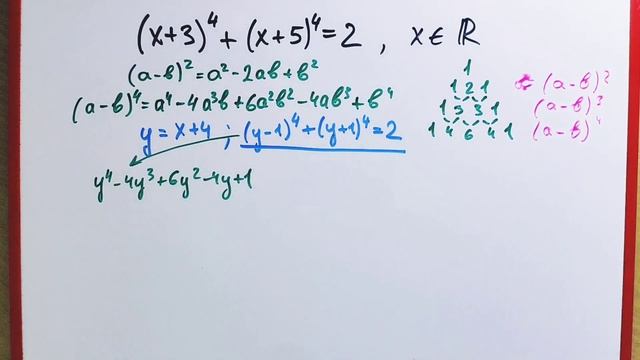 (x+3)⁴ + (x+5)⁴ = 2 , x ∈ ℝ
(a-b)² = a² - 2ab + b²
(a-b)⁴ = a⁴ - 4a³b + 6a²b² - 4ab³ + b⁴
y = x+4 ; (y-1)⁴ + (y+1)⁴ = 2
y⁴ - 4y³ + 6y² - 4y + 1
1
1 2 1 (a-b)²
1 3 3 1 (a-b)³
1 4 6 4 1 (a-b)⁴